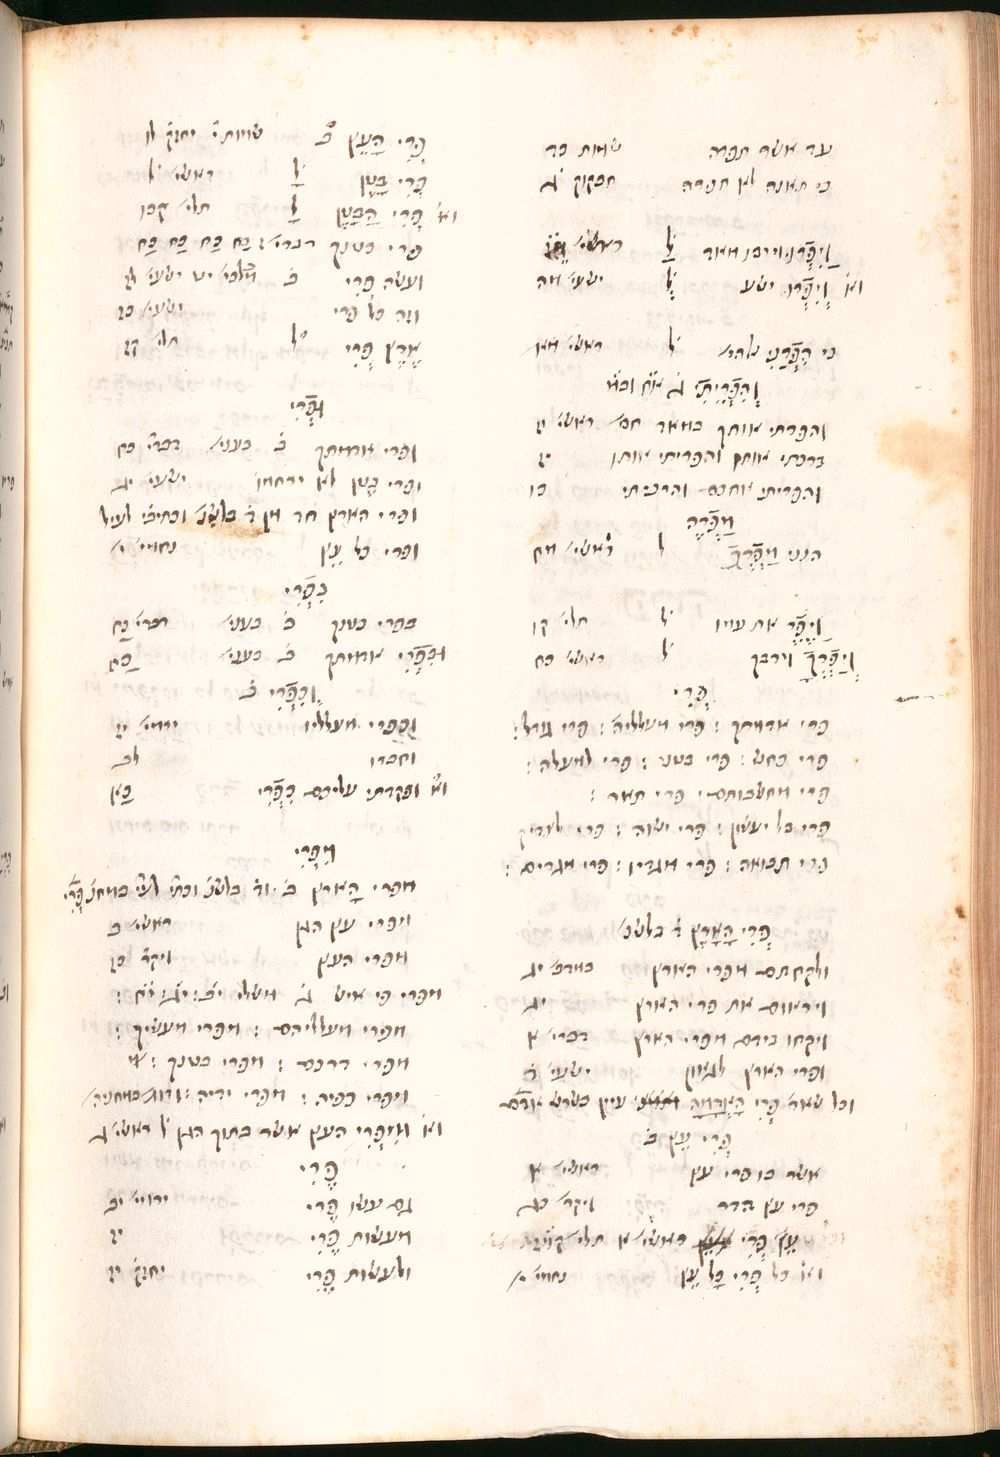 עד אשר תפרה שמות כד
כי תאנה לא תפרח חבקוק ג
וַיִּפְרוּ וירבו מאד ל ראשי׳
וא׳ וְיִפְרוּ ישע ל ישעי׳ מה
כי הִפְרַנִי אלהי׳ ל ראשי׳ מא
וְהִפְרֵיתִי ג
והפרתי אותך במאד מא׳ ראשי׳ יז
ברכתי אותו והפריתי אותו יז
והפריתי אתכם והרביתי כו
מַפְרֶה
הנני מַפְרְךָ ל ראשי׳ מח
וַיֶּפֶר את עמו ל תלי׳ קו
וְיַפְרְךָ וירבך ל ראשי׳ כח
פְּרִי
פרי אדמתך : פרי מעלליה׳ : פרי גודל :
פרי כחש : פרי בטני : פרי למעלה :
פרי מחשבותם : פרי תאר :
פרי כל יעשון : פרי ישוה : פרי לצדיק
פרי תבואה : פרי מגדיו : פרי מגדים :
פְּרִי הָאָרֶץ ד בלשנ׳
ולקחתם מפרי הארץ במדב׳ יג
ויראום את פרי הארץ יג
ויקחו בידם מפרי הארץ דברי׳ א
ופרי הארץ לגאון ישעי׳ ד
וכל שאר פְּרִי הָאֲדָמָה עיין בשרש אדם
פְּרִי עֵץ ב
אשר בו פרי עץ ראשי׳ א
פרי עץ הדר ויקר׳ כג
עֵץ פְּרִי ראשי׳ א תלי׳
וא׳ כל פְּרִי כָל עֵץ נחמי׳ י
פְּרִי הָעֵץ ב שמות י׳ יחזק׳ לו
פְּרִי בָטֶן ל ראשי׳ ל
וא׳ פְּרִי הַבָּטֶן ל תלי׳ קכז
פרי בטנך דברי׳ ז כח כח כח כח
ועשה פְרִי ב מלכי׳ יט ישעי׳ לז
וזה כל פרי ישעי׳ כז
אֶרֶץ פְּרִי ל תלי׳ קז
וּפְרִי
ופרי אדמתך ב בעני׳ דברי׳ כח
ופרי בטן לא ירחמו ישעי׳ יג
ופרי הארץ חד מן ד בלשנ׳ וכתיבי׳ לעיל
ופרי כל עֵץ נחמי׳ י
בִּפְרִי
בפרי בטנך ב בעני׳ דברי׳ כח
וּבִפְרִי אדמתך ב בעני׳ כח
וְכִפְרִי ב
וכפרי מעלליו ירמי׳ יז
וחברו לב
וא׳ ופקדתי עליכם כִּפְרִי כא
מִפְּרִי
מפרי הָארץ ב
ומפרי עץ הגן ראשי׳ ב
מפרי העץ ויקר׳ כז
מפרי פי איש ג משלי יב : יג : יח :
מפרי מעלליהם : מפרי מעשיך :
מפרי דרכם : מפרי בטנך :
ומפרי כפיה : מפרי ידיה :
וא׳ וּמִפְּרִי העץ אשר בתוך הגן ל ראשי׳ ג
פֶּרִי
גם עשו פֶּרִי ירמי׳ יב
מעשות פֶּרִי יז
ולעשות פֶּרִי יחזק׳ יז